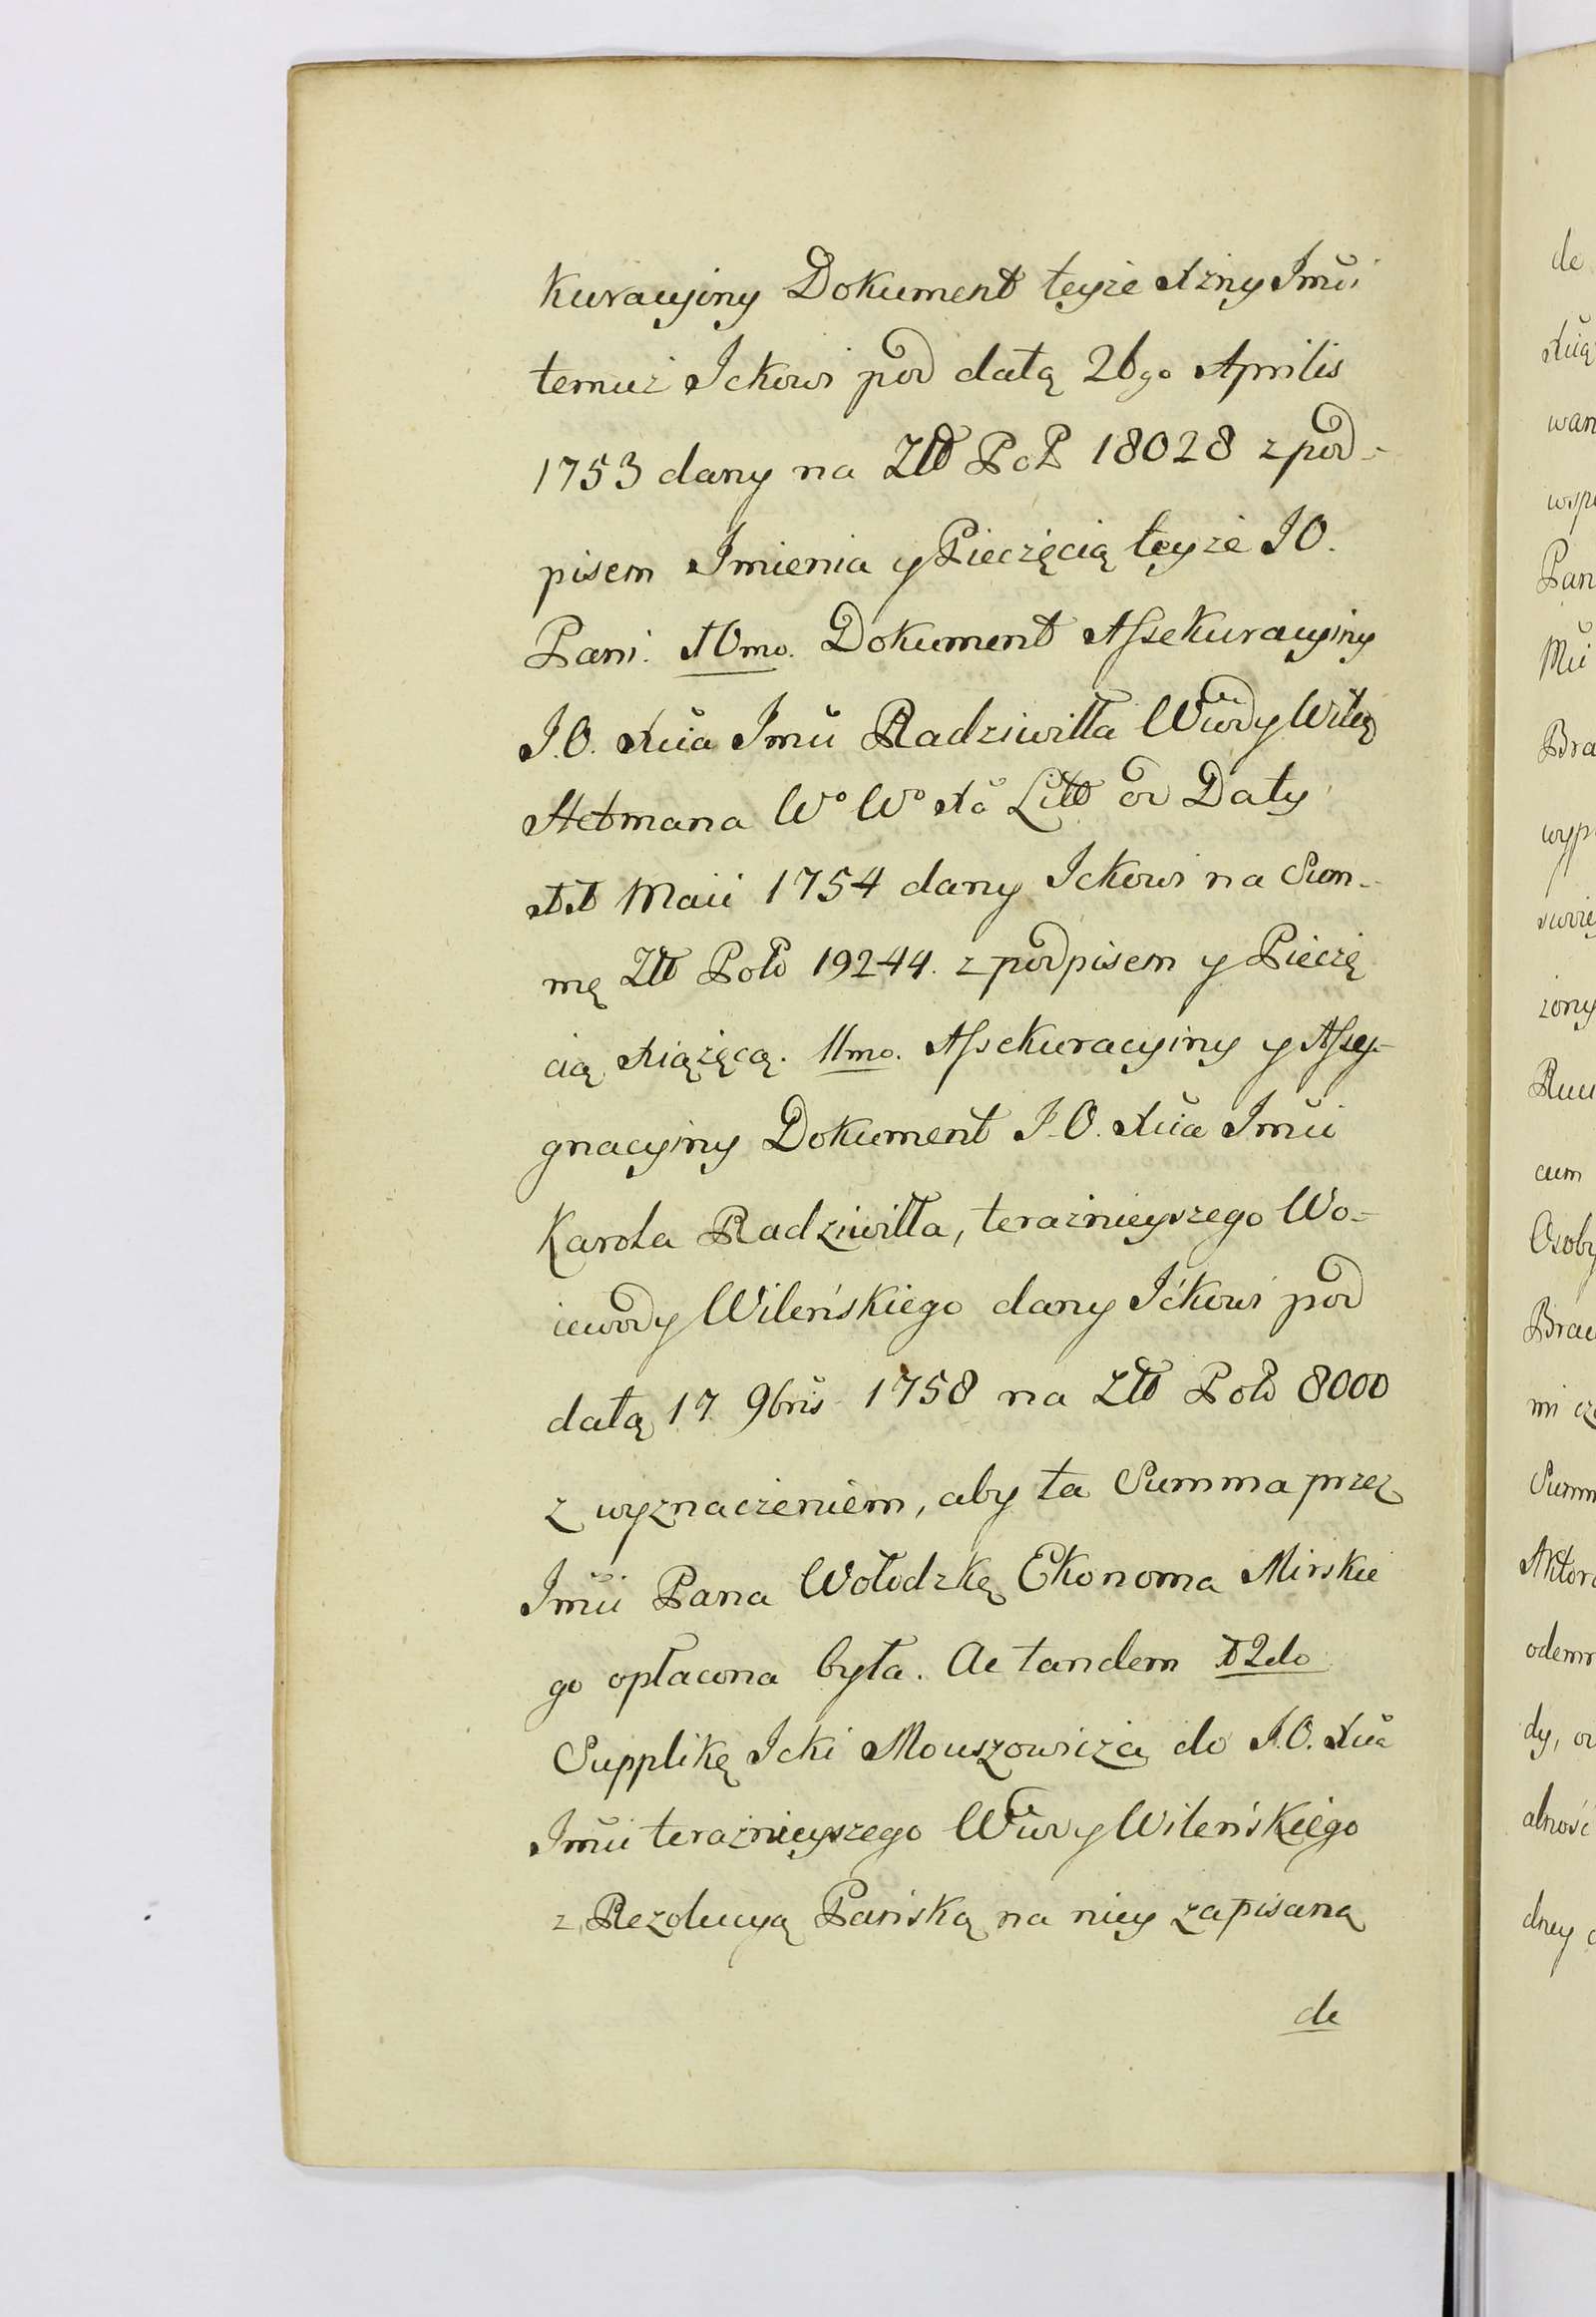 kuracyiny Dokument teyże Xzny Jmũi
temuż Ickowi pod datą 26go Aprilis
1753 dany na Złł Pol 18028 z pod-
pisem Imienia y Pieczęcią teyże J O.
Pani. 10mo. Dokument Assekuracyiny
J. O. Xcia Jmũ Radziwiłła Wwdy Wilęo
Hetmana Wo Wo Xa Litt od Daty
11 Maii 1754 dany Ickowi na Sum-
mę Złł Pols 19244. z podpisem y Pieczę
cią Xiążęcą. 11mo. Assekuracyiny y Assy-
gnacyiny Dokument J. O. Xcia Jmũi
Karola Radziwiłła, teraznieyszego Wo-
iewody Wileńskiego dany Ickowi pod
datą 17 9bris 1758 na Złł Pols 8000
z wyznaczeniem, aby ta Summa przez
Jmũi Pana Wołodzkę Ekonoma Mirskie
go opłacona była. Ac tandem 12do
Supplikę Icki Mouszowicza do J. O. Xcia
Jmũi teraznieyszego Wwdy Wileńskiego
z Rezolucyą Pańską na niey zapisaną
de
de
wan
Pan
Bra
żony
cum
Osoby
Summ
dy,
alność
dney